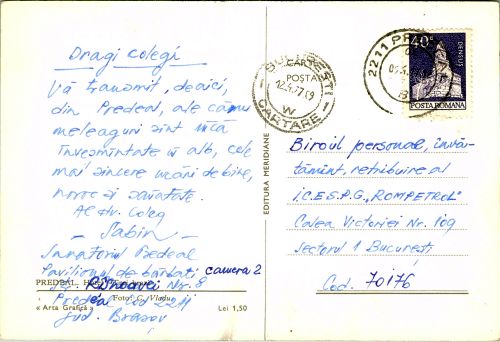 Dragi colegi
Vă transmit, de aici,
din Predeal, ale cărui
meleaguri sînt încă
înveșmîntate în alb, cele
mai sincere urări de bine,
noroc și sănătate.
Al dv. coleg
Sabin
Sanatoriul Predeal
Pavilionul de bărbați, camera 2
PREDEAL,
Str. Rîșnoavei Nr. 8
Predeal cod 2211
Foto: C. Vladu
Jud. Brașov
« Arta Grafică »
Lei 1,50
EDITURA MERIDIANE
BUCUREȘTI
CARTARE
POȘTA
W
2211
40
DENSUȘ
POSTA ROMANA
Biroul personal, învăț-
tămînt, retribuire al
I.C.E.S.P.G. „ROMPETROL"
Calea Victoriei Nr. 109
Sectorul 1 București
Cod. 70176